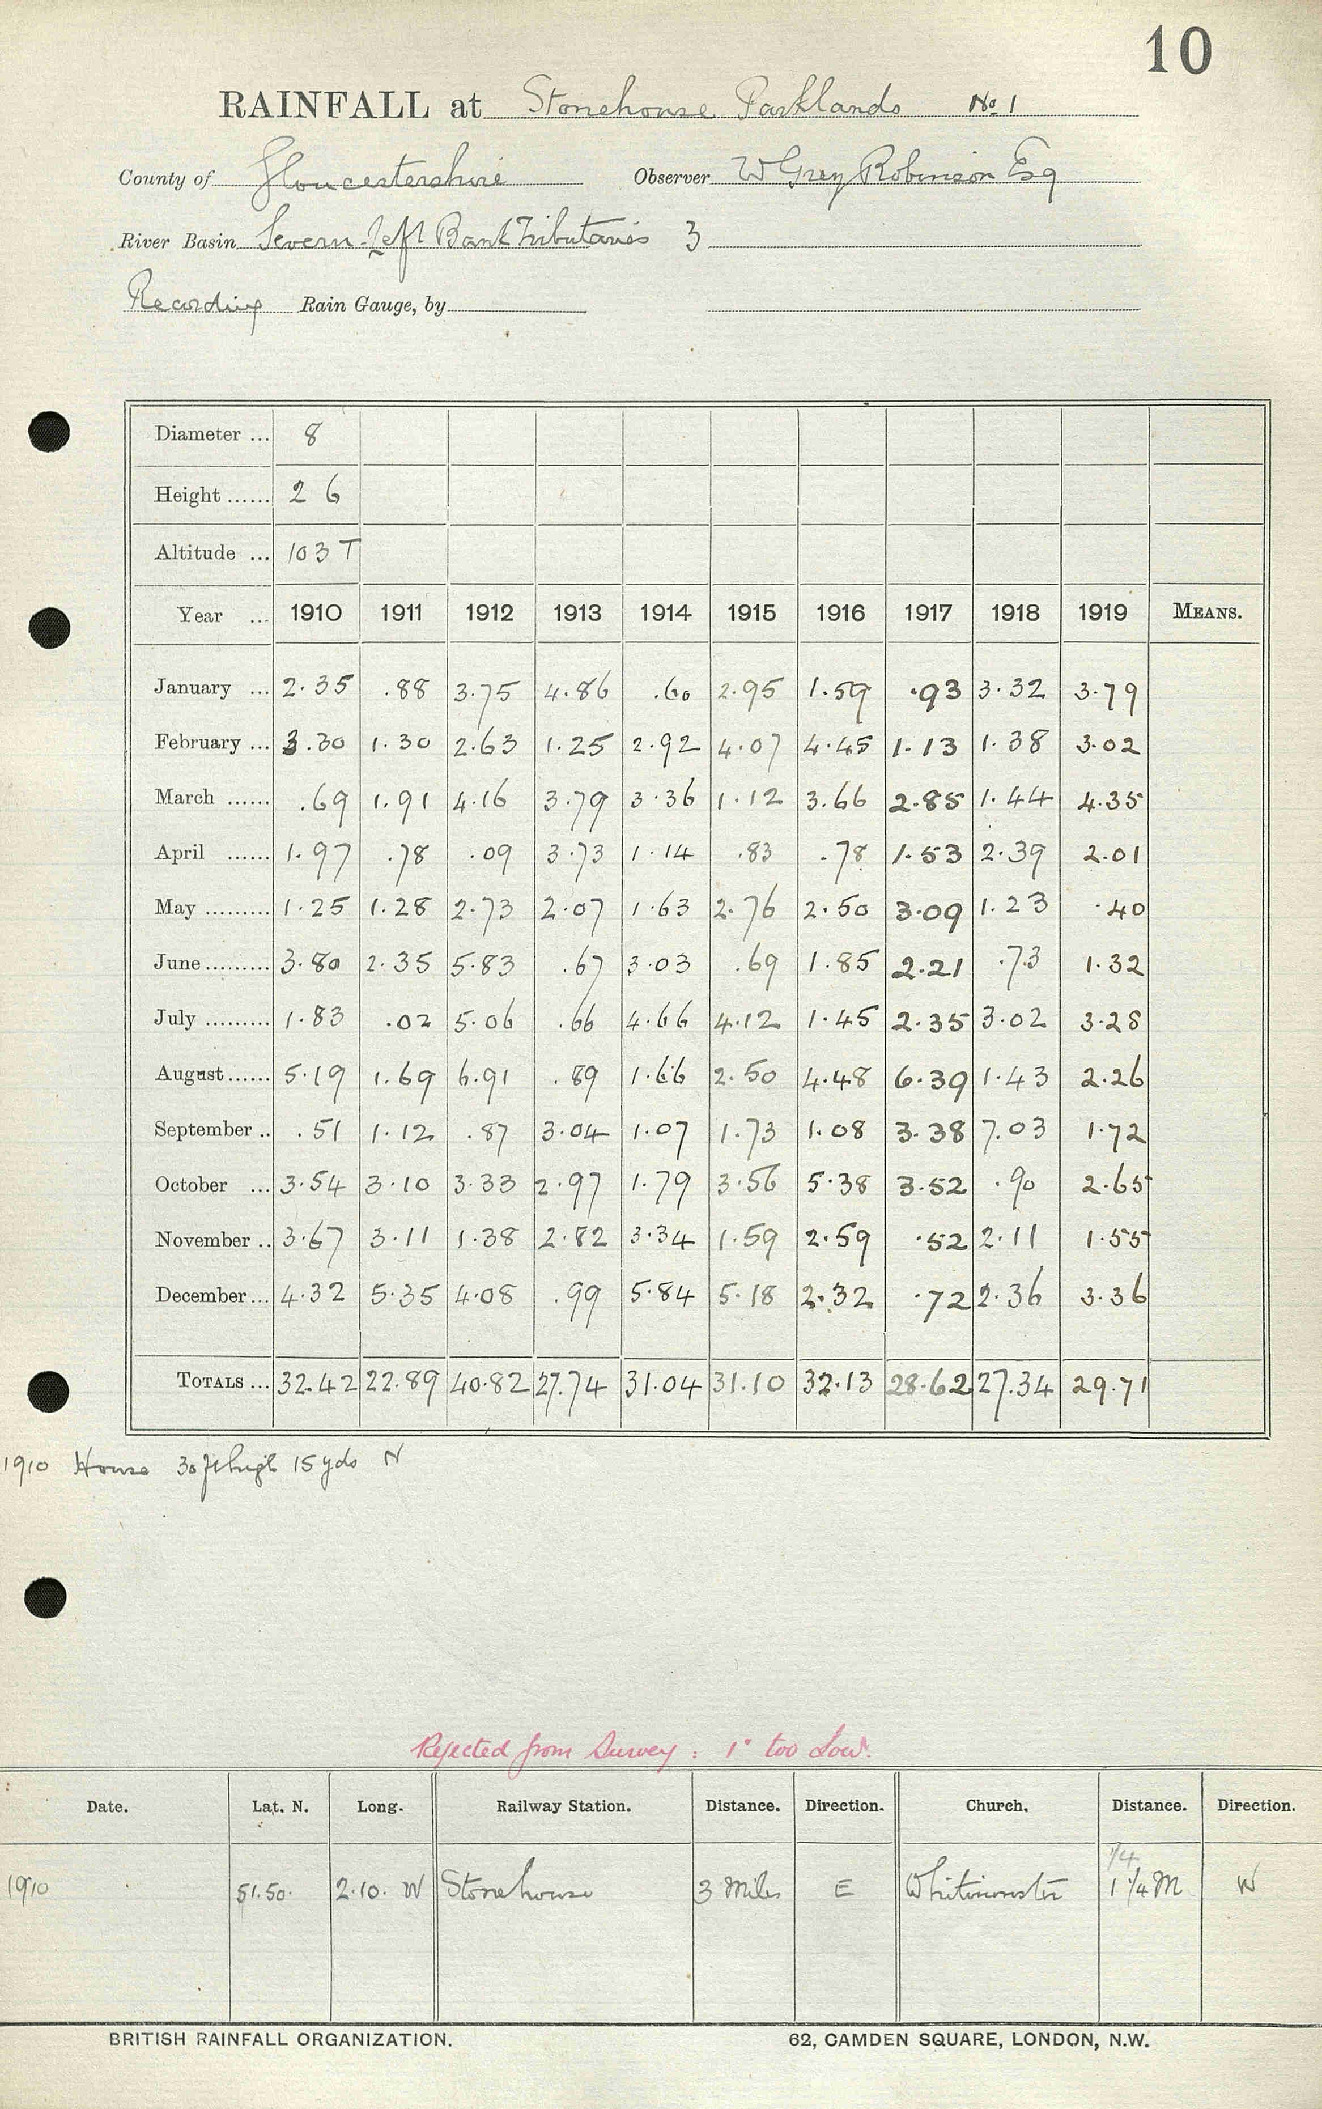 10
RAINFALL at Stonehouse Parklands No. 1
County of Gloucestershire Observer W Grey Robinson Esq
River Basin Severn-Left Bank Tributaries 3
Recording Rain Gauge, by
Diameter ... 8
Height ...... 2 6
Altitude ... 103 T
Year ... 1910 1911 1912 1913 1914 1915 1916 1917 1918 1919 MEANS.
January ... 2.35 .88 3.75 4.86 .60 2.95 1.59 .93 3.32 3.79
February ... 3.30 1.30 2.63 1.25 2.92 4.07 4.45 1.13 1.38 3.02
March ...... .69 1.91 4.16 3.79 3.36 1.12 3.66 2.85 1.44 4.35
April ...... 1.97 .78 .09 3.73 1.14 .83 .78 1.53 2.39 2.01
May ......... 1.25 1.28 2.73 2.07 1.63 2.76 2.50 3.09 1.23 .40
June ......... 3.80 2.35 5.83 .67 3.03 .69 1.85 2.21 .73 1.32
July ......... 1.83 .02 5.06 .66 4.66 4.12 1.45 2.35 3.02 3.28
August ...... 5.19 1.69 6.91 .89 1.66 2.50 4.48 6.39 1.43 2.26
September .. .51 1.12 .87 3.04 1.07 1.73 1.08 3.38 7.03 1.72
October ... 3.54 3.10 3.33 2.97 1.79 3.56 5.38 3.52 .90 2.65
November .. 3.67 3.11 1.38 2.82 3.34 1.59 2.59 .52 2.11 1.55
December ... 4.32 5.35 4.08 .99 5.84 5.18 2.32 .72 2.36 3.36
TOTALS ... 32.42 22.89 40.82 27.74 31.04 31.10 32.13 28.62 27.34 29.71
1910 House 30 ft high 15 yds N
Rejected from Survey : 1" too Low.
Date. Lat. N. Long. Railway Station. Distance. Direction. Church. Distance. Direction.
1/4
1910 51.50. 2.10. W Stonehouse 3 Miles E Whitminster 1 1/4 M W
BRITISH RAINFALL ORGANIZATION. 62, CAMDEN SQUARE, LONDON, N.W.